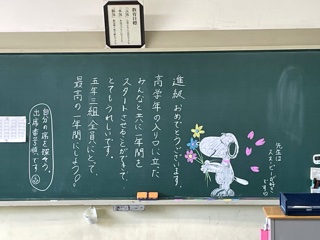 教育目標
進級 おめでとうございます。
高学年の入り口に立った
みんなと共に一年間を
スタートさせることができて、
とてもうれしいです。
五年三組全員にとって、
最高の一年間にしよう!
先生は
スヌーピーが好き
です
自分の席を探そう。
出席番号順です。